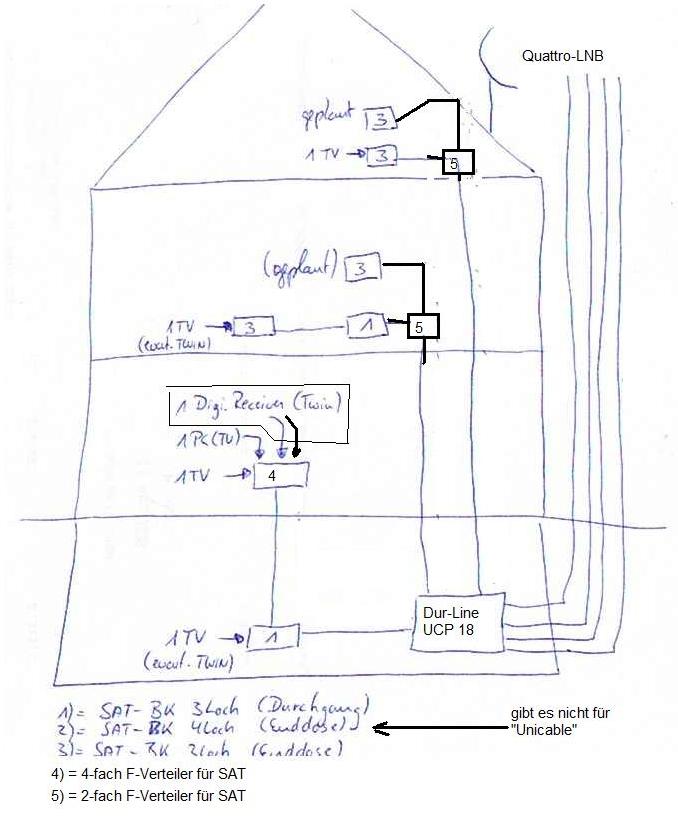 Quattro-LNB
geplant 3
1 TV 3
5
(geplant) 3
1 TV 3 1 5
(evat. TWIN)
1 Digi. Receiver (Twin)
1 PC (TV)
1 TV 4
Dur-Line
UCP 18
1 TV 1
(evat. TWIN)
1)= SAT-BK 3Loch (Durchgang)
2)= SAT-BK 4Loch (Enddose)
3)= SAT-BK 2Loch (Enddose)
gibt es nicht für
"Unicable"
4) = 4-fach F-Verteiler für SAT
5) = 2-fach F-Verteiler für SAT